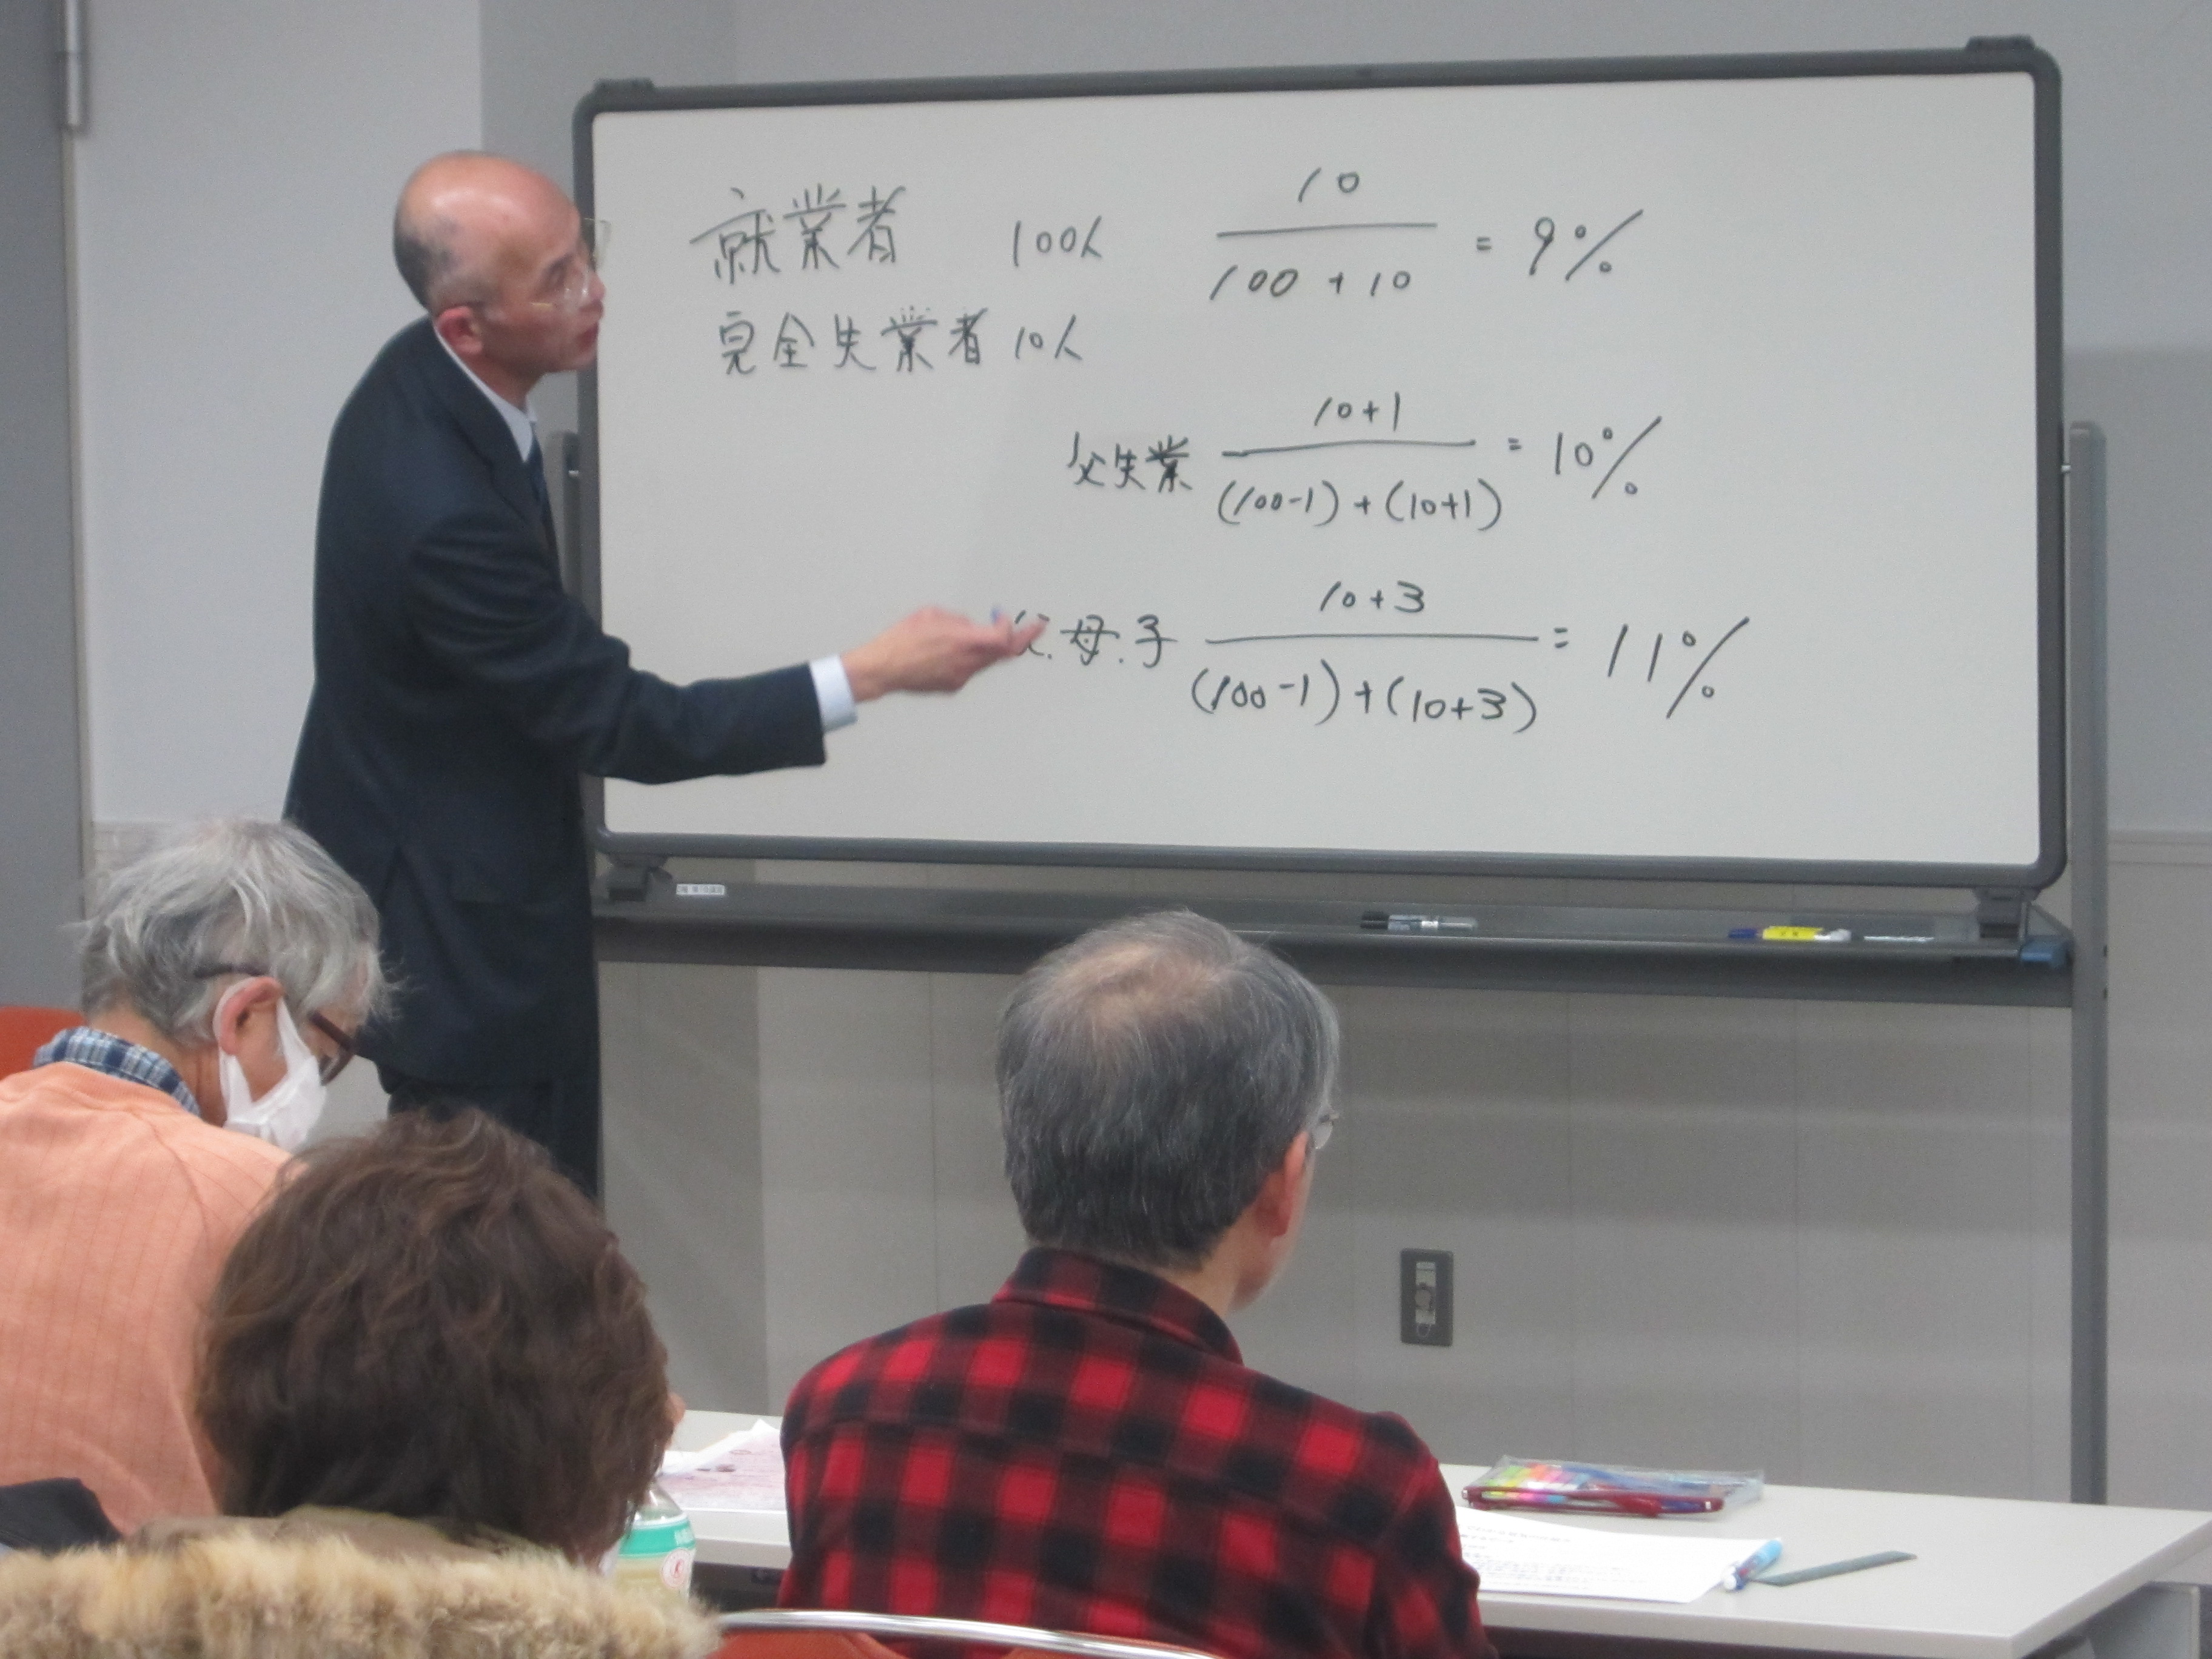 就業者 100人 10 / 100 + 10 = 9%
完全失業者 10人
父失業 10+1 / (100-1)+(10+1) = 10%
父.母.子 10+3 / (100-1)+(10+3) = 11%